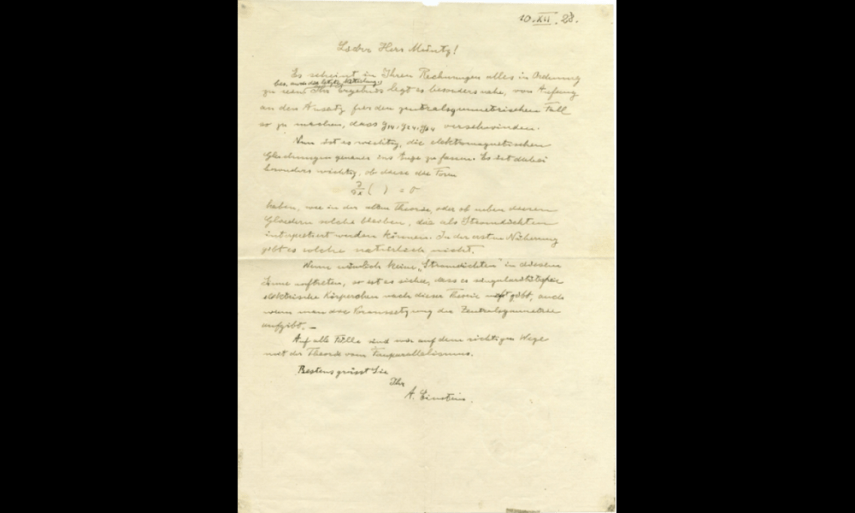 10. XII. 28.
Lieber Herr Müntz!
Es scheint in Ihren Rechnungen alles in Ordnung
zu sein. Ergebnis legt es besonders nahe, von Anfang
an den Ansatz für den zentralsymmetrischen Fall
so zu machen, dass verschwinden.
Nun ist es wichtig, die elektromagnetischen
Gleichungen genauer ins Auge zu fassen. Es ist dabei
besonders wichtig, ob diese die Form
( ) = 0
haben, wie in der alten Theorie, oder ob neben diesen
Gliedern solche bleiben, die als Stromdichten
interpretiert werden können. In der ersten Näherung
gibt es solche natürlich nicht.
Wenn nämlich keine „Stromdichten" in diesem
Sinne auftreten, so ist es sicher, dass es singularitätsfreie
elektrische Körperchen nach dieser Theorie nicht gibt, auch
wenn man die Voraussetzung der Zentralsymmetrie
aufgibt. —
Auf alle Fälle sind wir auf dem richtigen Wege
mit der Theorie vom Fernparallelismus.
Bestens grüsst Sie
Ihr
A. Einstein.